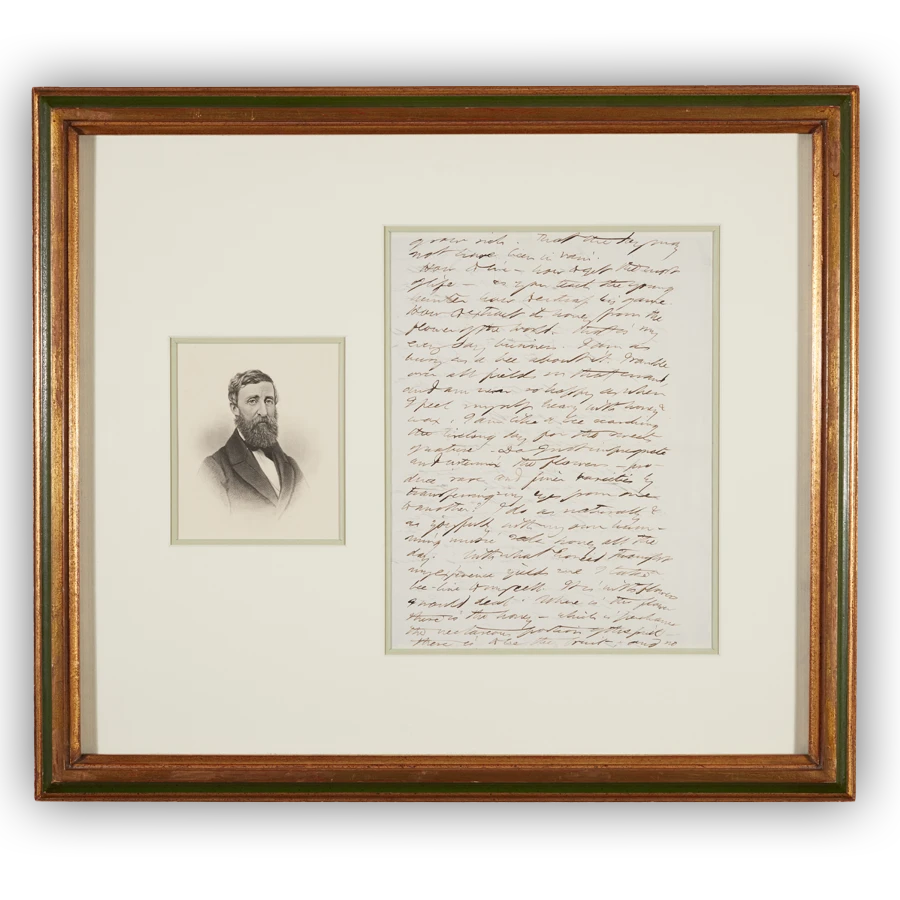 grow rich. That the day may
not have been in vain.
How to live – how to get the most
of life – as if you teach the young
hunter how to entrap his game.
How to extract its honey from the
flower of the world. That is my
every day business. I am as
busy as a bee about it. I ramble
over all fields on that errand
and am never so happy as when
I feel myself heavy with honey &
wax. I am like a bee searching
the livelong day for the sweets
of nature. Do I not impregnate
and intermix the flowers – pro-
duce rare and finer varieties by
transferring my eyes from one
to another? I do as naturally &
as joyfully with my own hum-
ming music seek honey all the
day. With what honied thought
any experience yields me I take a
bee-line to my cell. It is with flowers
I would deal. Where is the flower
there is the honey – which is perchance
the nectareous portion of the fruit –
there is to be the fruit – and no